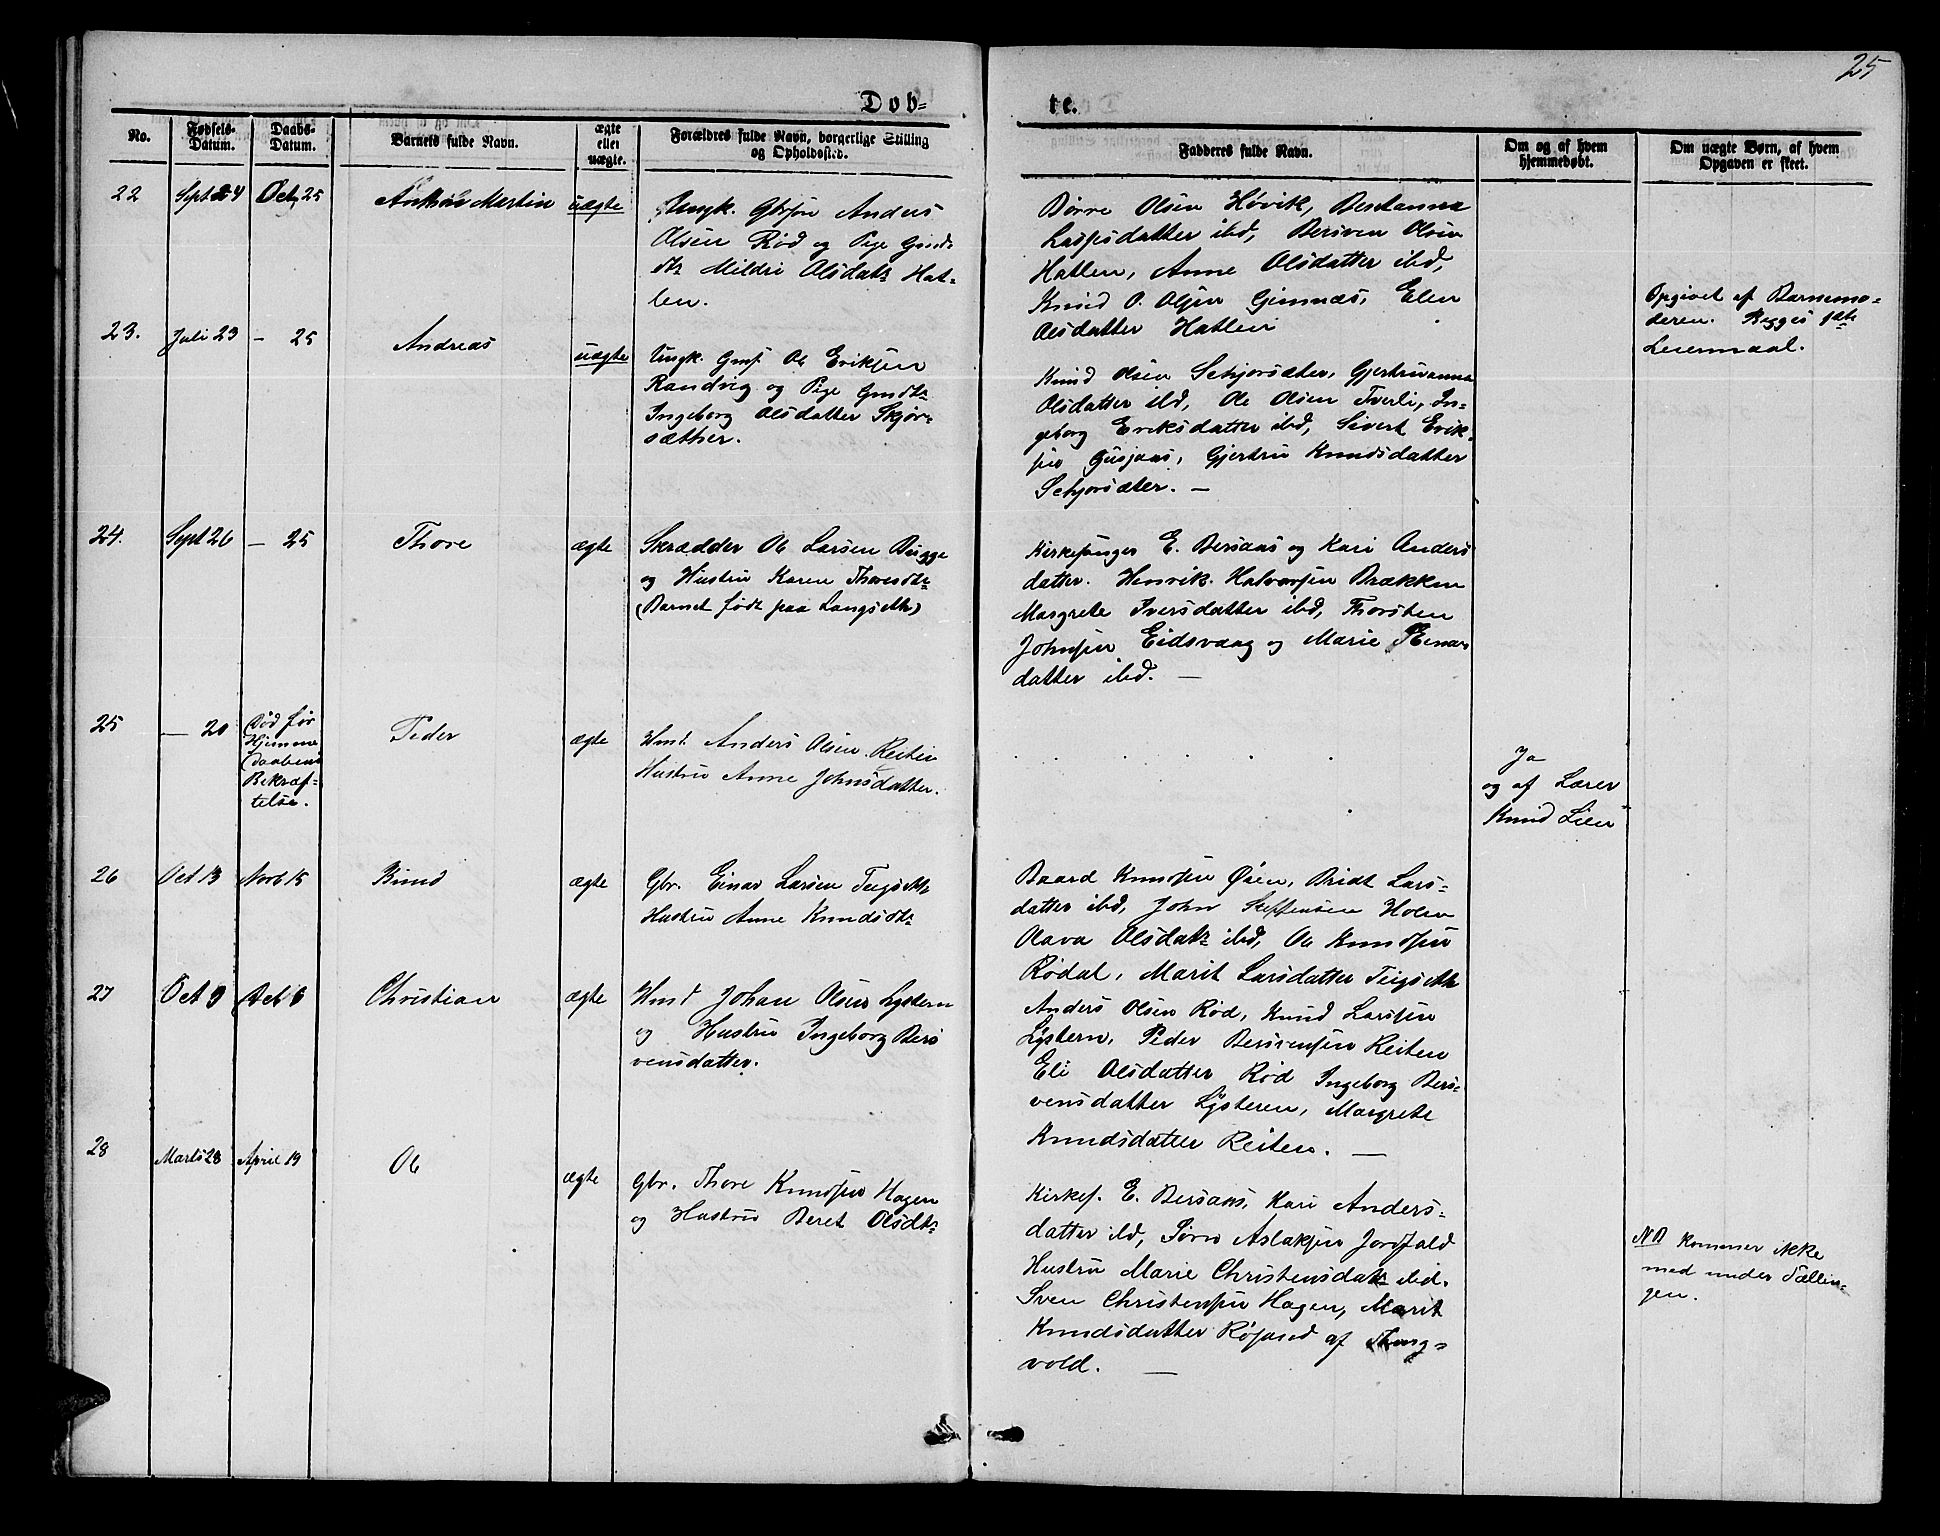 25
Døb-
te.
No.
Fødsels-
Datum.
Daabs-
Datum.
Barnets fulde Navn.
ægte
eller
uægte.
Forældres fulde Navn, borgerlige Stilling
og Opholdssted.
Fadderes fulde Navn.
Om og af hvem
hjemmedøbt.
Om uægte Børn, af hvem
Opgaven er skeet.
22
Sept 24
Oct 25
Martin
uægte
Ungk. Anders
Olsen Rød og Pige
Mildri Olsdatr Hat-
len.
Børre Olsen Høvik,
datter ibd, Bersven Olsen
Hatlen, Anne Olsdatter ibd,
Knud O. Olsen Gimnæs, Elen
Olsdatter Hatlen
Opgivet af Barnemo-
deren. Begges 1ste
Leiermaal.
23.
Juli 23
— 25
Andreas
uægte
Ungk. Gmf. Ole Eriksen
Randvig og Pige Gmdtr
Ingeborg Olsdatter Skjør-
sæther.
Knud Olsen Schjorsæter, Gjertruanna
Olsdatter ibd, Ole Olsen Tverli, In-
geborg Eriksdatter ibd, Sivert Erik-
sen Gusjaas, Gjertru Knudsdatter
Schjorsæter. —
24.
Sept 26
— 25
Thore
ægte
Skrædder Ole Larsen Bugge
og Hustru Karen Thoresdtr
(Barnet født paa Langseth)
Kirkesanger E. Bersaas og Kari Anders
datter. Henrik Halvorsen Brækken
Margrete Iversdatter ibd, Thorsten
Johnsen Eidsvaag og Marie Einar
datter ibd. —
25
— 20
Død før
Hjemme
daabens
Bekræf-
telse.
Peder
ægte
Hmd. Anders Olsen Reiten
Hustru Anne Johnsdatter.
Ja
og af Lærer
Knud Lien
26
Oct 13
Novb 15
ægte
Gbr. Einar Larsen Teigseth
Hustru Anne Knudsdtr
Baard Knudsen Øien, Bridt Lars-
datter ibd, John Steffensen Holen
Olava Olsdatr ibd, Ole Knudsen
Rødal, Marit Larsdatter Teigseth
27
Oct 9
Decb 6
Christian
ægte
Hmd Johan Olsen Lystern
og Hustru Ingeborg Bers
vensdatter.
Anders Olsen Rød, Knud Larsen
Lystern, Peder Bersvensen Reiten
Eli Olsdatter Rød Ingeborg Bers-
vensdatter Lysteren, Margrete
Knudsdatter Reiten. —
28
Marts 28
April 19
Ole
ægte
Gbr. Thore Knudsen Hagen
og Hustru Beret Olsdtr
Kirkes. E. Bersaas, Kari Anders-
datter ibd, Søren Aslaksen Jordfald
Hustru Marie Christensdatr ibd.
Sven Christensen Hagen, Marit
Knudsdatter Røsand af
vold. —
NB kommer ikke
med under Tællin-
gen.